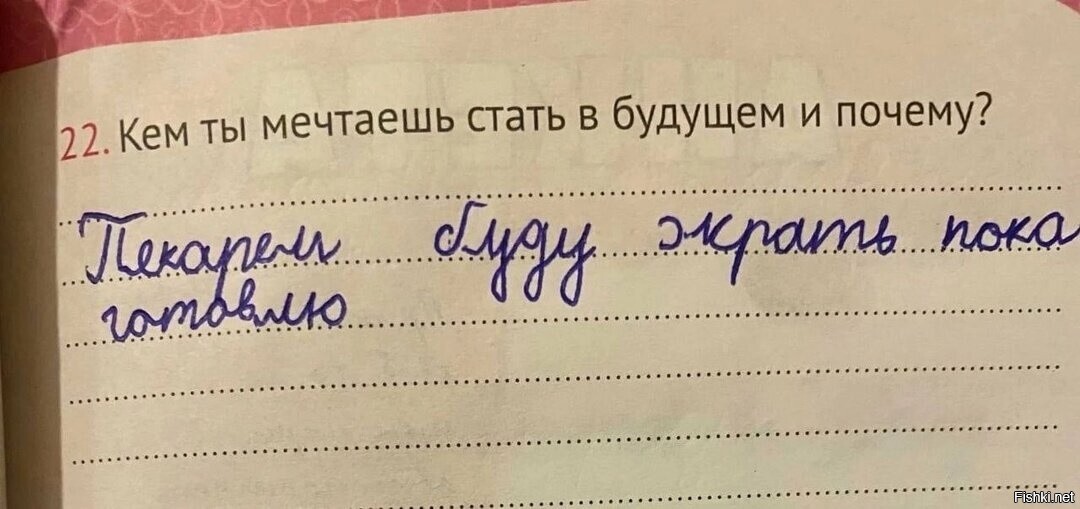 22. Кем ты мечтаешь стать в будущем и почему?
Пекарем буду жрать пока
готовлю
Fishki.net